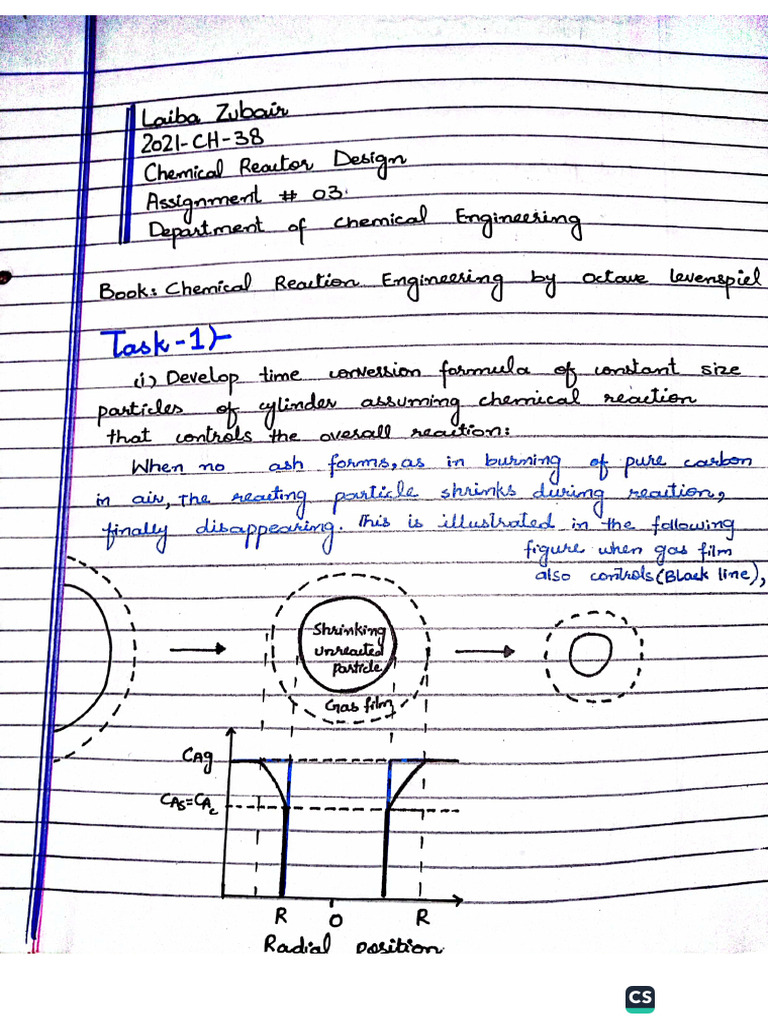 Laiba Zubair
2021-CH-38
Chemical Reactor Design
Assignment # 03.
Department of Chemical Engineering
Book: Chemical Reaction Engineering by Octave levenspiel
Task-1)-
(i) Develop time conversion formula of constant size
particles of cylinder assuming chemical reaction
that controls the overall reaction:
When no ash forms, as in burning of pure carbon
in air, the reacting particle shrinks during reaction,
finally disappearing. This is illustrated in the following
figure when gas film
also controls (Black line),
Shrinking
unreacted
particle
Gas film
CAg
CAs=CAc
R O R
Radial position
CS